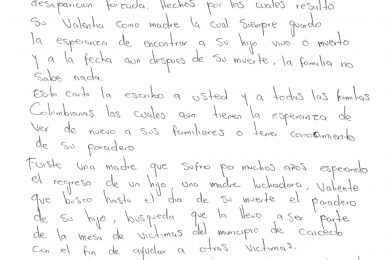 desaparicion forzada. Hechos por los cuales resulto
Su Valentia como madre la cual siempre guardo
la esperanza de encontrar a su hijo vivo ó muerto
y a la fecha aun despues de su muerte, la familia no
Sabe nada.
Esta carta la escribo a usted y a todas las familias
Colombianas las cuales aun tienen la esperanza de
Ver de nuevo a sus familiares o tener conocimiento
de su paradero
Fuiste una madre que sufrio por muchos años esperando
el regreso de un hijo, una madre luchadora, Valiente
que busco hasta el dia de su muerte el paradero
de su hijo, busqueda que la llevo a ser parte
de la mesa de victimas del municipio de Caicedo
Con el fin de ayudar a otras victimas.